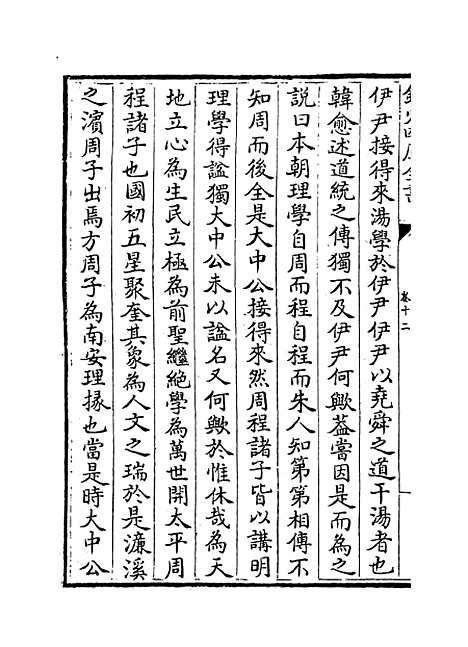 卷十二
伊尹接得來湯學於伊尹伊尹以堯舜之道干湯者也
韓愈述道統之傳獨不及伊尹何歟葢嘗因是而為之
說曰本朝理學自周而程自程而朱人知第第相傳不
知周而後全是大中公接得來然周程諸子皆以講明
理學得諡獨大中公未以諡名又何歟於惟休哉為天
地立心為生民立極為前聖繼絶學為萬世開太平周
程諸子也國初五星聚奎其象為人文之瑞於是濂溪
之濱周子出焉方周子為南安理掾也當是時大中公